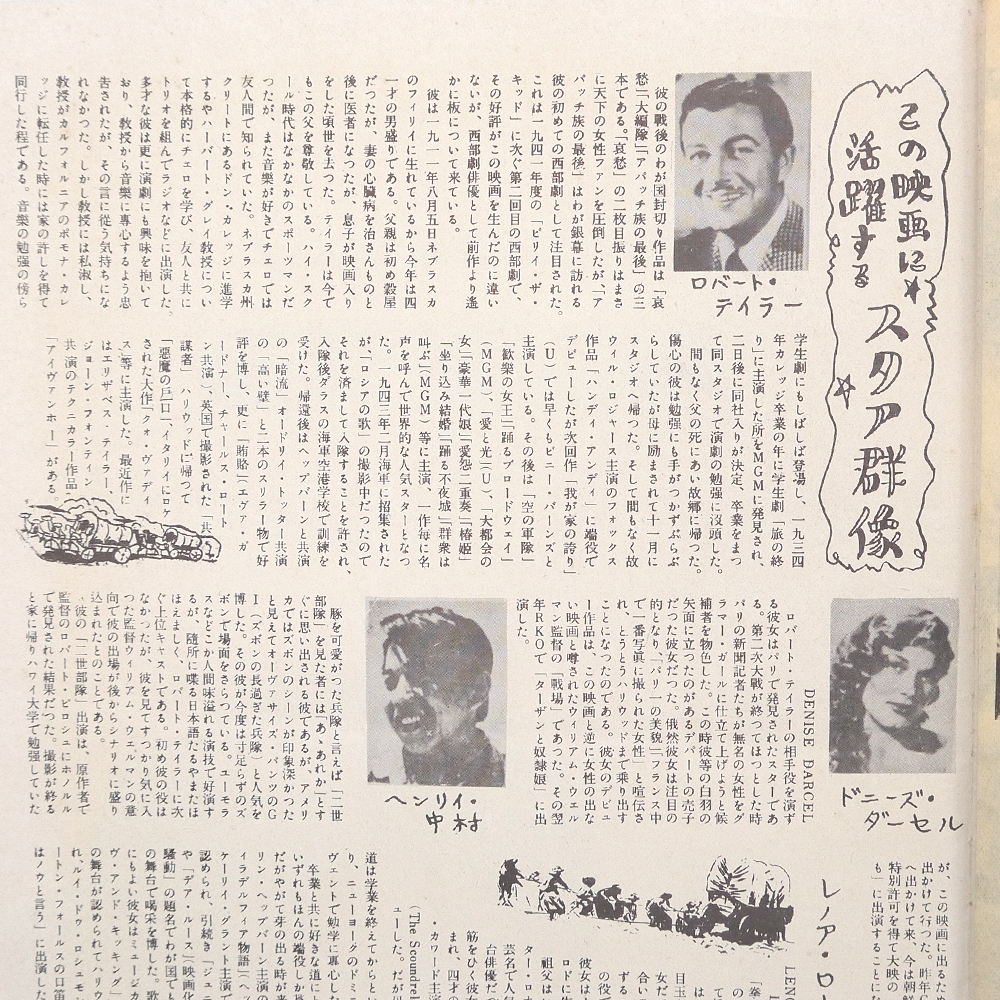 この映画に
活躍する
スタア群像
ロバート・
テイラー
彼の戦後のわが国封切り作品は「哀
愁」「大編隊」「アパッチ族の最後」の三
本である。「哀愁」の二枚目振りはまさ
に天下の女性ファンを圧倒したが、「ア
パッチ族の最後」はわが銀幕に訪れる
彼の初めての西部劇として注目された。
これは一九四一年度の「ビリイ・ザ・
キッド」に次ぐ第二回目の西部劇で、
その好評がこの映画を生んだのに違い
ないが、西部劇俳優として前作より遙
かに板について来ている。
彼は一九一一年八月五日ネブラスカ
のフィリイに生れているから今年は四
一才の男盛りである。父親は初め穀屋
だつたが、妻の心臓病を治さんものと
後に医者になつたが、息子が映画入り
をした頃世を去つた。テイラーは今で
もこの父を尊敬している。ハイ・スク
ール時代はなかなかのスポーツマンだ
つたが、また音樂が好きでチェロでは
友人間で知られていた。ネブラスカ州
クリートにあるドン・カレッジに進学
するやハーバート・グレイ教授につい
て本格的にチェロを学び、友人と共に
トリオを組んでラジオなどに出演した。
多才な彼は更に演劇にも興味を抱いて
おり、教授から音樂に専心するよう忠
告されたが、その言に従う気持ちにな
れなかつた。しかし教授には私淑し、
教授がカルフォルニアのポモナ・カレ
ッジに転任した時には家の許しを得て
同行した程である。音樂の勉強の傍ら
学生劇にもしばしば登場し、一九三四
年カレッジ卒業の年に学生劇「旅の終
り」に主演した所をMGMに発見され、
二日後に同社入りが決定、卒業をまつ
て同スタジオで演劇の勉強に沒頭した。
間もなく父の死にあい故郷に帰つた。
傷心の彼は勉強にも手がつかずぶらぶ
らしていたが母に励まされて十一月に
スタジオへ帰つた。そして間もなく故
ウィル・ロジャース主演のフォックス
作品「ハンディ・アンディ」に端役で
デビューしたが次回作「我が家の誇り」
(U)では早くもビニー・バーンズと
主演している。その後は「空の軍隊」
「歓樂の女王」「踊るブロードウェイ」
(MGM)、「愛と光」(U)、「大都会の
女」「豪華一代娘」「愛怨二重奏」「椿姫」
「坐り込み結婚」「踊る不夜城」「群衆は
叫ぶ」(MGM)等に主演、一作毎に名
声を呼んで世界的な人気スターとなつ
た。一九四三年二月海軍に招集された
が、「ロシアの歌」の撮影中だつたので
それを済まして入隊することを許され、
入隊後ダラスの海軍空港学校で訓練を
受けた。帰還後はヘップバーンと共演
の「暗流」オードリイ・トッター共演
の「高い壁」と二本のスリラー物で好
評を博し、更に「賄賂」(エヴァ・ガ
ードナー、チャールス・ロート
ン共演)、英国で撮影された「共
謀者」ハリウッドに帰つて
「悪魔の戸口」、イタリイにロケ
された大作「クォ・ヴァディ
ス」等に主演した。最近作に
はエリザベス・テイラー、
ジョーン・フォンティン
共演のテクニカラー作品
「アイヴァンホー」がある。
ドニーズ・
ダーセル
DENISE DARCEL
ロバート・テイラーの相手役を演ず
る彼女はパリで発見されたスターであ
る。第二次大戦が終つてほつとした時
パリの新聞記者たちが無名の女性をグ
ラマー・ガールに仕立て上げようと候
補者を物色した。この時彼等の白羽の
矢面に立つたのがあるデパートの売子
だつた彼女だつた。俄然彼女は注目の
的となり、「パリ一の美貌」「フランス中
で一番写眞に撮られた女性」と喧伝さ
れ、とうとうハリウッドまで乗り出す
ことになつたのである。彼女のデビュ
ー作品は、この映画と逆に女性の出な
い映画と噂されたウィリアム・ウェル
マン監督の「戦場」であつた。その翌
年RKOで「ターザンと奴隷娘」に出
演した。
ヘンリイ・
中村
豚を可愛がつた兵隊と言えば「二世
部隊」を見た者には「あゝあれか」とす
ぐに思い出される彼であるが、アメリ
カではズボンのシーンが印象深かつた
と見えてオーヴァサイズ・パンツのG
I(ズボンの長過ぎた兵隊)と人気を
博した。その彼が今度は寸足らずのズ
ボンで場面をさらつている。ユーモラ
スなどこか人間味溢れる演技で好演す
るが、随所に喋る日本語たるやまたほ
ほえましく、ロバート・テイラーに次
ぐ上位キャストである。初め彼の役は
なかつたが、彼を見てすつかり気に入
つた監督ウィリアム・ウェルマンの意
向で彼の出場が後からシナリオに盛り
込まれたとのことである。
彼の「二世部隊」出演は、原作者で
監督のロバート・ピロッシュにホノルル
で発見された結果だつた。撮影が終る
と家に帰りハワイ大学で勉強していた
が、この映画に出るため
出かけて行つた。昨年
へ出かけて来、今は朝
特別許可を得て大映の
も」に出演することに
レノア・ロ
道は学業を終えてからと
り、ニューヨークのドミ
ヴェントで勉学に専心した
卒業と共に好きな道に
いずれもほんの端役しか
だがやがて芽の出る時が来
リン・ヘップバーン主演
ィラデルフィア物語」(ヘ
ケーリイ・グラント主演で
認められ、引続き「ジュニ
や「デア・ルース」(映画化
騒動」の題名でわが国でも
の舞台で喝采を博した。歌
にもよい彼女はミュージカ
ヴ・アンド・キッキング」
の舞台が認められてハリウ
れ、ルイ・ド・ロシュモン
ートン・フォールスの口笛
はノウと言う」に出演した
(The Scoundrel